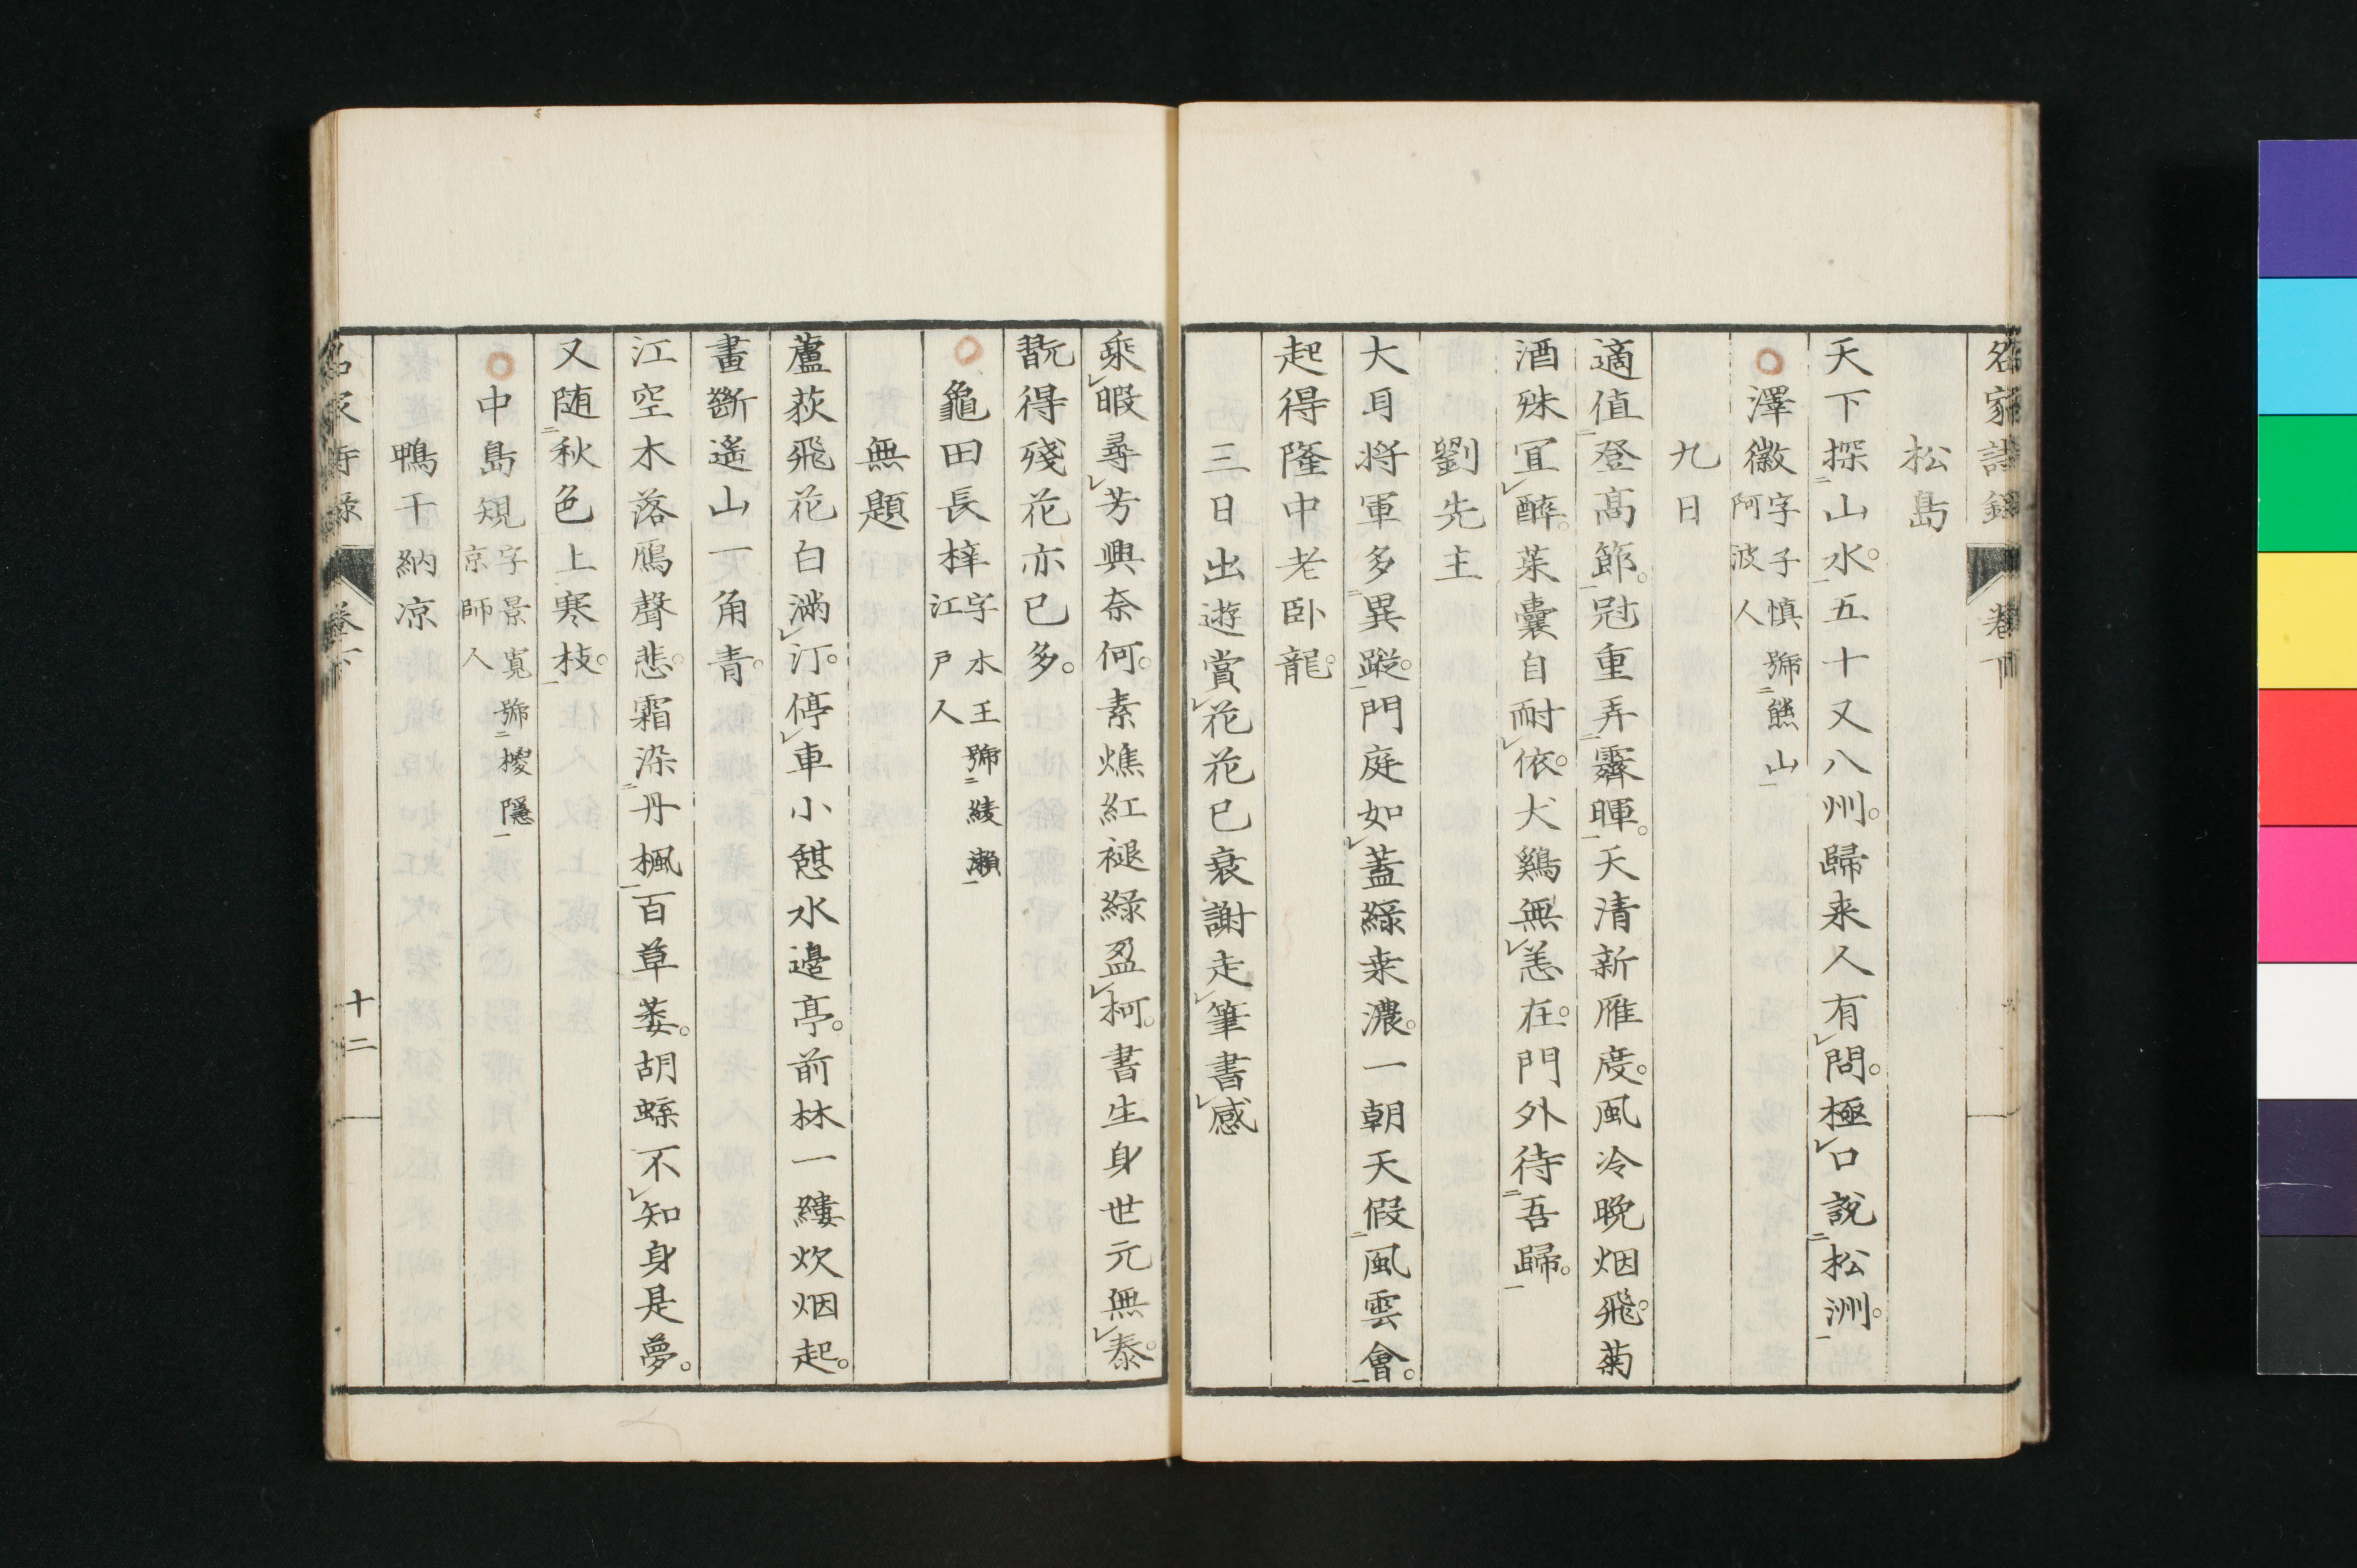 名家詩録 卷下
松島
天下探山水。五十又八州。歸来人有問。極口説松洲。
澤徽 字子慎號熊山
阿波人
九日
適值登高節。冠重弄霽暉。天清新雁度。風冷晚烟飛。菊
酒殊宜醉。茱囊自耐依。犬鷄無恙在。門外待吾歸。
劉先主
大耳将軍多異蹤。門庭如蓋綠桒濃。一朝天假風雲會。
起得隆中老卧龍。
三日出遊賞花花已衰謝走筆書感
乘暇尋芳興奈何。素燋紅褪綠盈柯。書生身世元無泰。
翫得殘花亦已多。
龜田長梓 字木王號綾瀨
江戸人
無題
蘆荻飛花白滿汀。停車小憩水邊亭。前林一縷炊烟起。
畫斷遙山一角青。
江空木落鴈聲悲。霜染丹楓百草萎。胡蝶不知身是夢。
又随秋色上寒枝。
中島規 字景寬號椶隱
京師人
鴨干納凉
名家詩録 卷下 十二